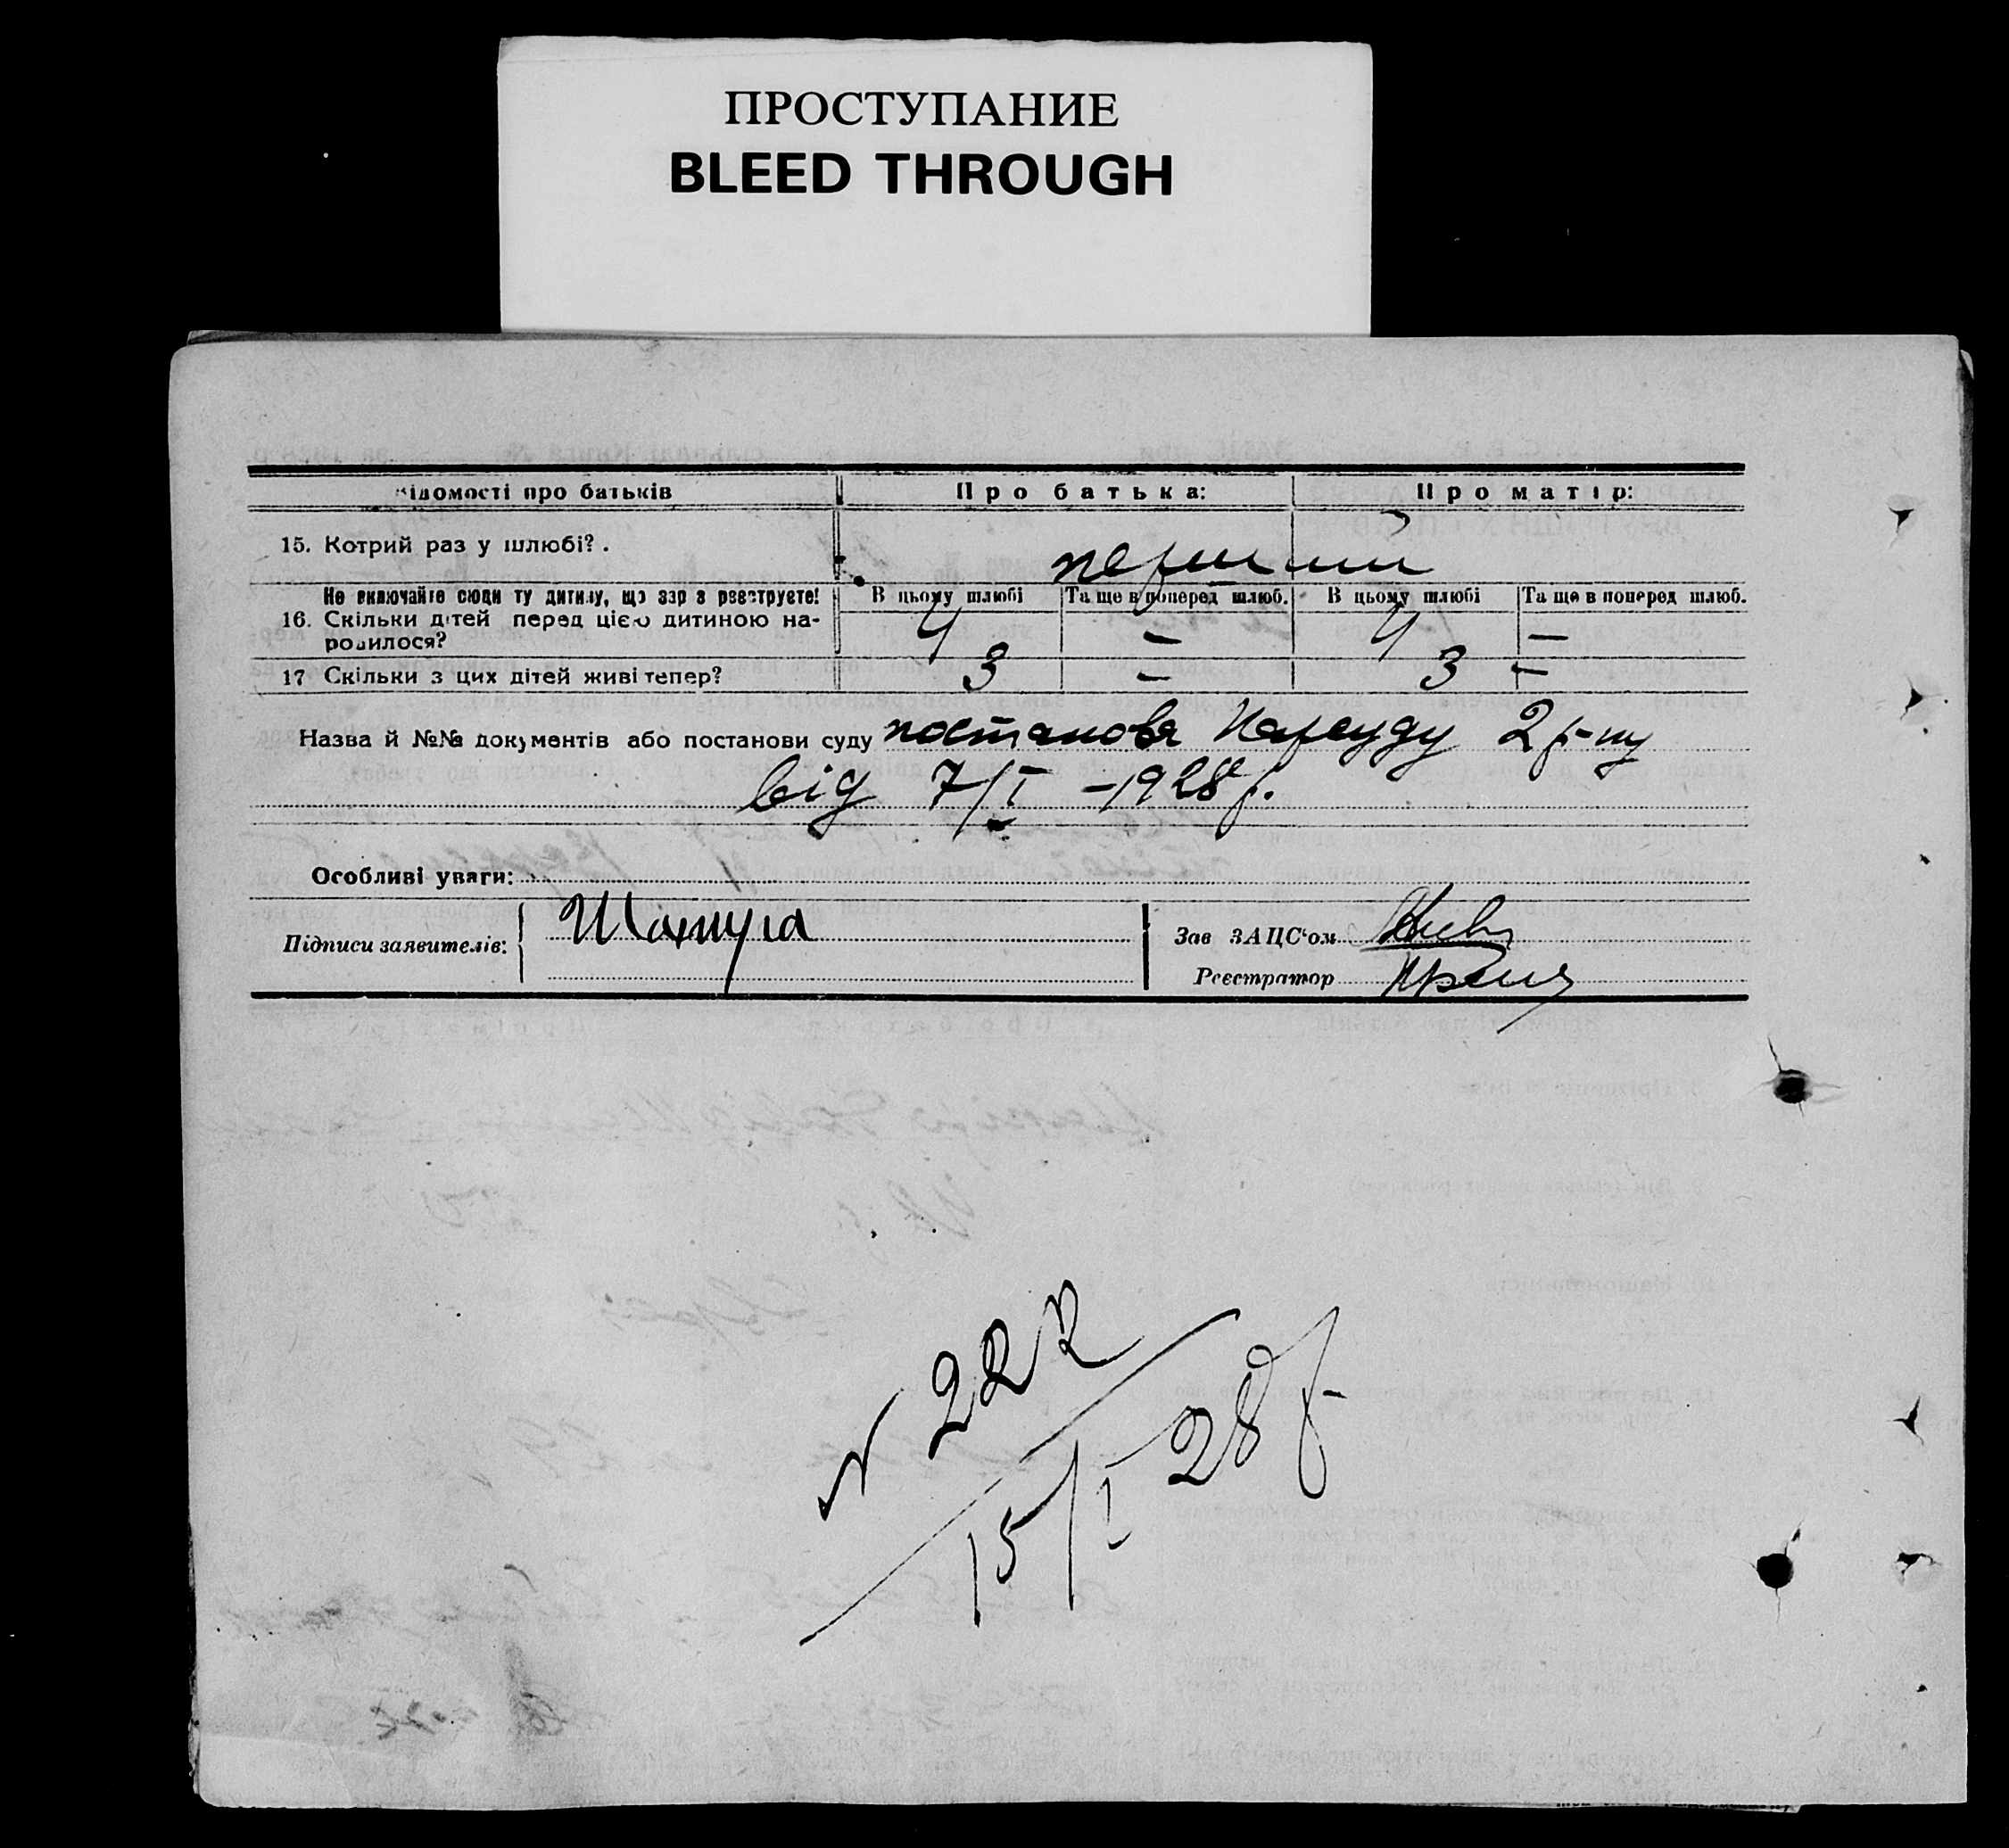 ПРОСТУПАНИЕ
BLEED THROUGH
Відомості про батьків Про батька: Про матір:
15. Котрий раз у шлюбі? . перший
Не включайте сюди ту дитину, що зараз реєструєте! В цьому шлюбі Та ще в поперед шлюб. В цьому шлюбі Та ще в поперед шлюб.
16. Скільки дітей перед цією дитиною на-
родилося? 4 – 4 –
17 Скільки з цих дітей живі тепер? 3 – 3 –
Назва й №№ документів або постанови суду постанова Нарсуду 2 р-ну
від 7/I – 1928 р.
Особливі уваги:
Підписи заявителів:
Зав ЗАЦС'ом
Реєстратор
N 222
15/I 28 р